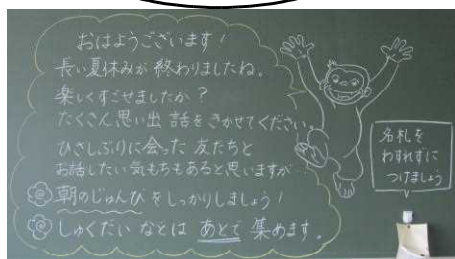 おはようございます!
長い夏休みが終わりましたね。
楽しくすごせましたか?
たくさん思い出話をきかせてください
ひさしぶりに会った友だちと
お話したい気もちもあると思いますが
朝のじゅんびをしっかりしましょう!
しゅくだいなどはあとで集めます。
名札を
わすれずに
つけましょう